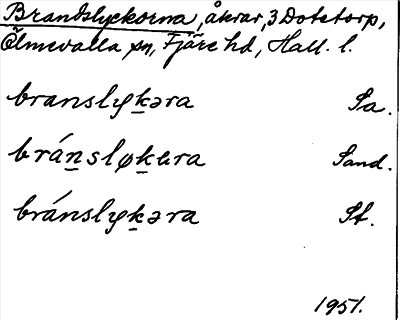 Brandslyckorna, åkrar, 3 Dotetorp,
Ölmevalla sn, Fjäre hd, Hall. l.
branslyk̲əra Sa.
brán̲sløk̲ɐra Sand.
bránslyk̲əra St.
1951.